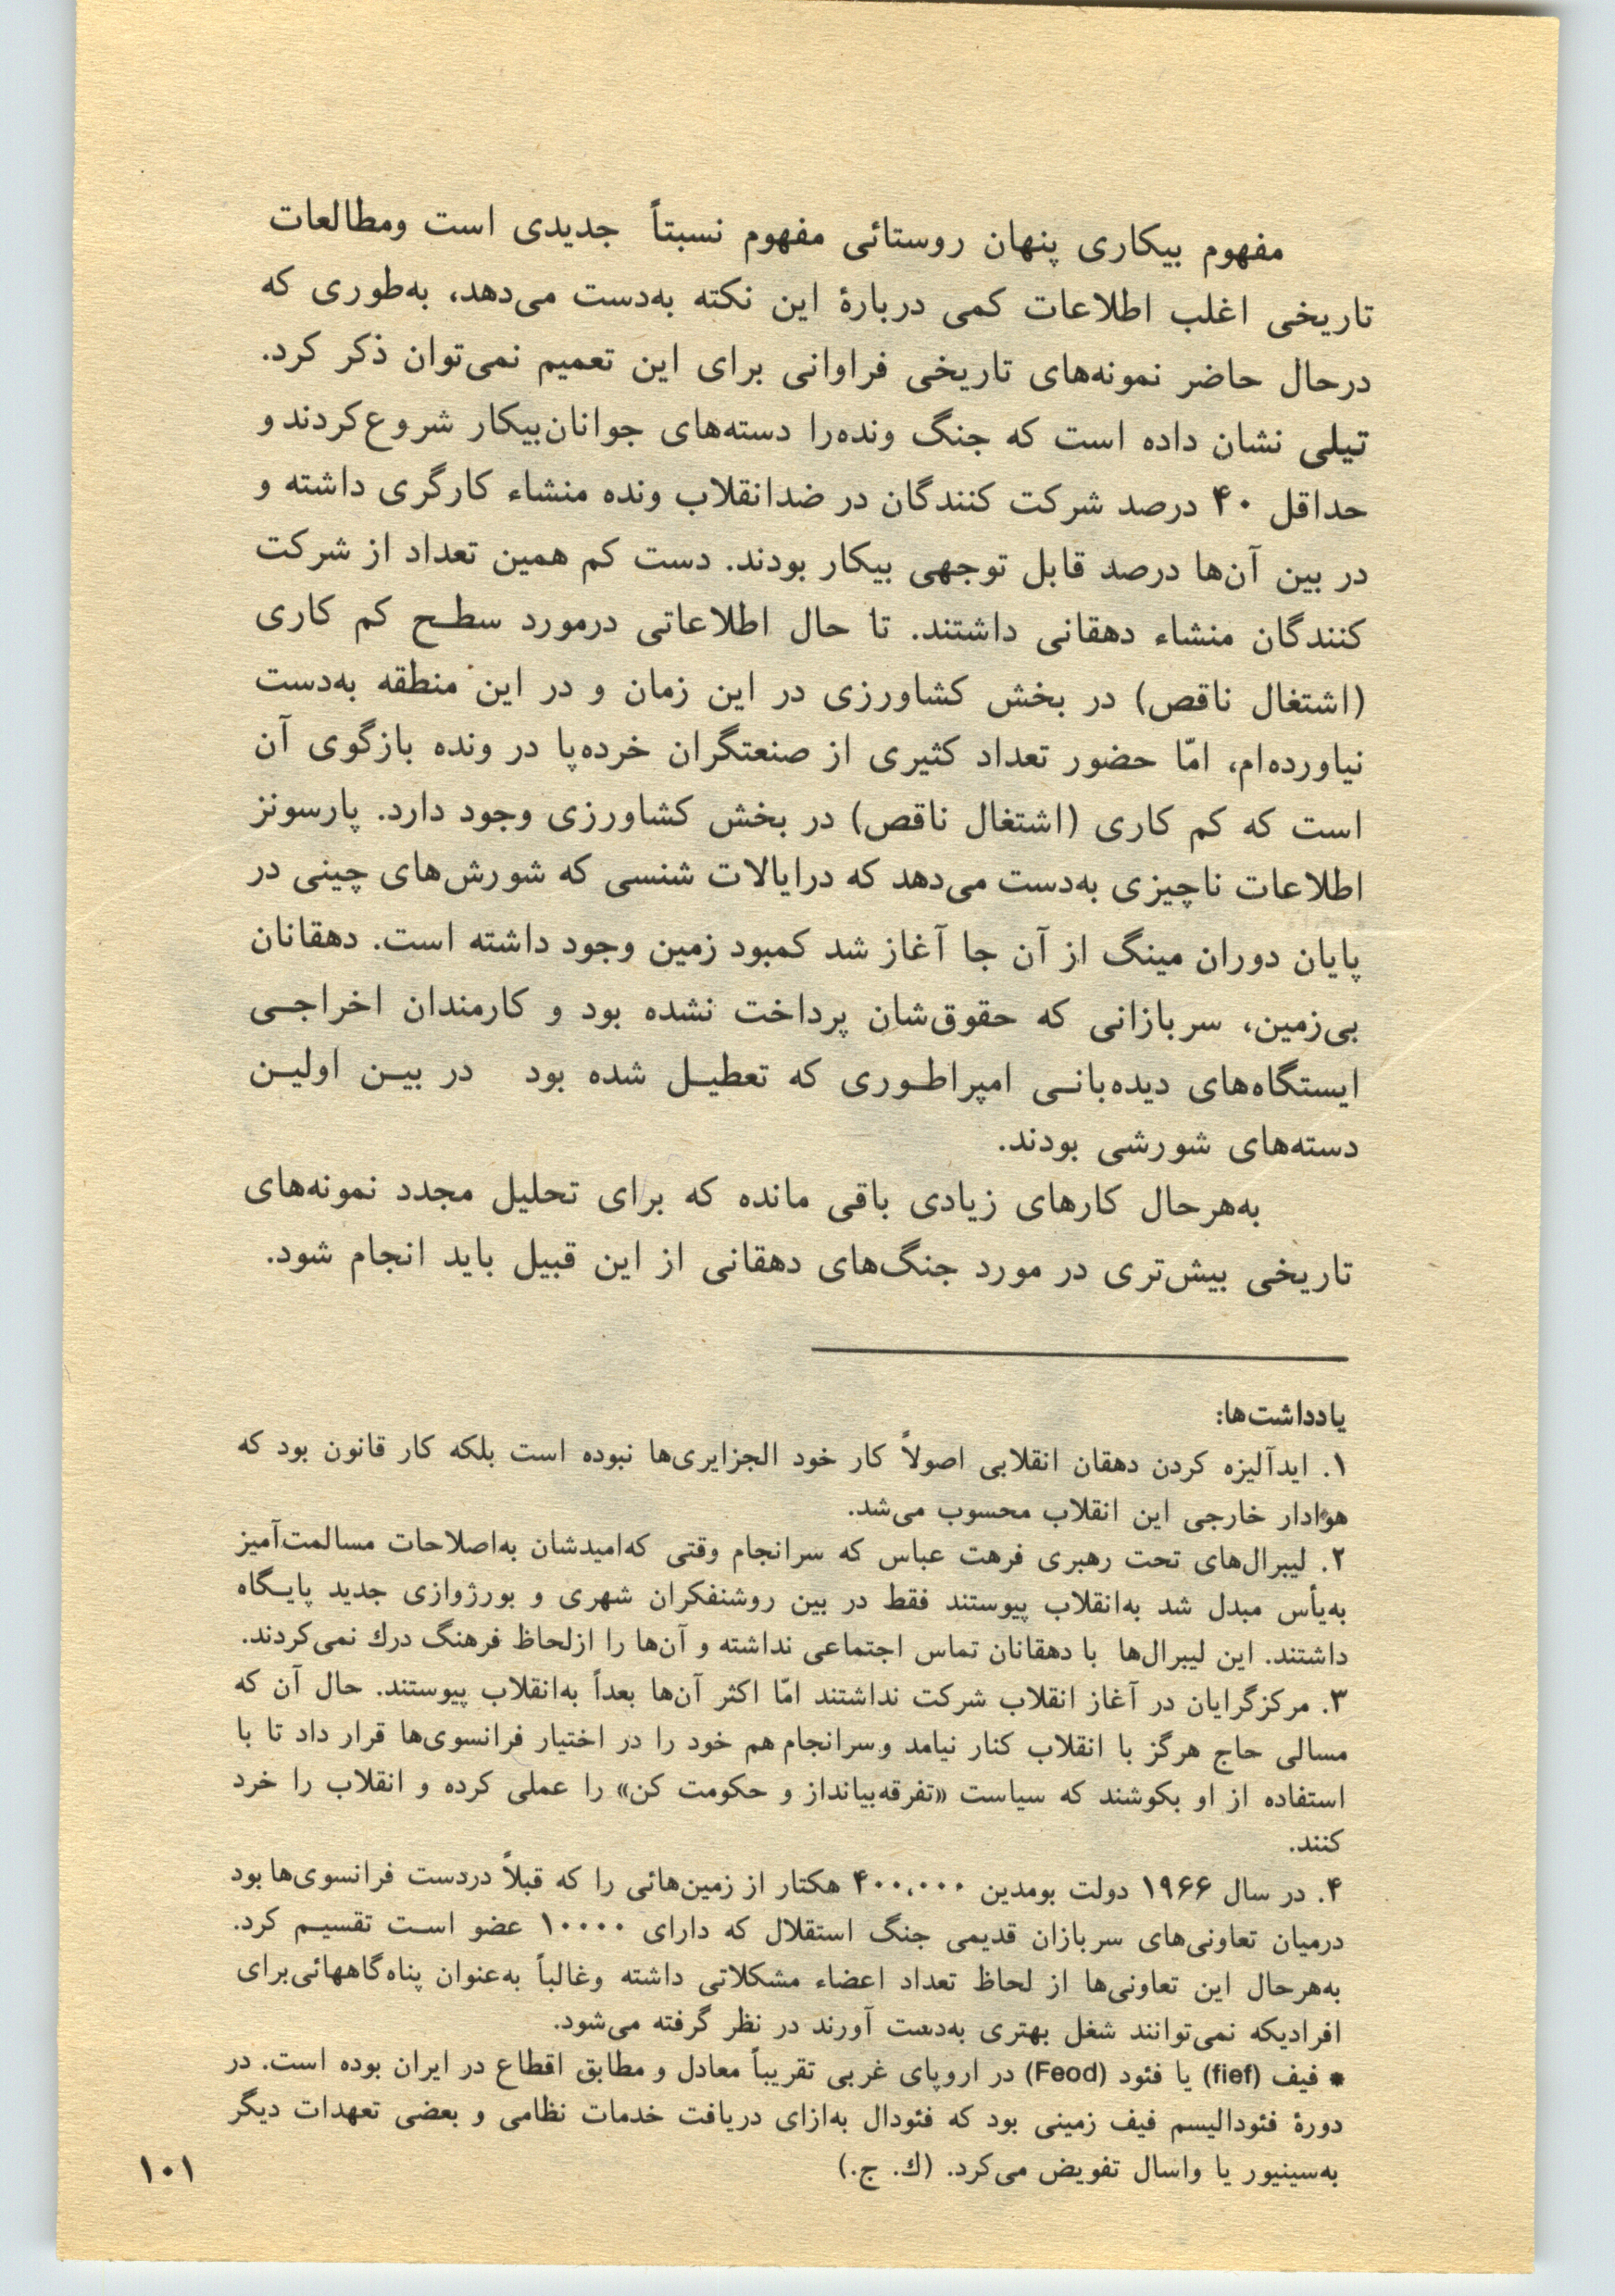 مفهوم بیکاری پنهان روستائی مفهوم نسبتاً جدیدی است ومطالعات
تاریخی اغلب اطلاعات کمی دربارهٔ این نکته به‌دست می‌دهد، به‌طوری که
درحال حاضر نمونه‌های تاریخی فراوانی برای این تعمیم نمی‌توان ذکر کرد.
تیلی نشان داده است که جنگ ونده‌را دسته‌های جوانان‌بیکار شروع‌کردند و
حداقل ۴۰ درصد شرکت کنندگان در ضدانقلاب ونده منشاء کارگری داشته و
در بین آن‌ها درصد قابل توجهی بیکار بودند. دست کم همین تعداد از شرکت
کنندگان منشاء دهقانی داشتند. تا حال اطلاعاتی درمورد سطح کم کاری
(اشتغال ناقص) در بخش کشاورزی در این زمان و در این منطقه به‌دست
نیاورده‌ام، امّا حضور تعداد کثیری از صنعتگران خرده‌پا در ونده بازگوی آن
است که کم کاری (اشتغال ناقص) در بخش کشاورزی وجود دارد. پارسونز
اطلاعات ناچیزی به‌دست می‌دهد که درایالات شنسی که شورش‌های چینی در
پایان دوران مینگ از آن جا آغاز شد کمبود زمین وجود داشته است. دهقانان
بی‌زمین، سربازانی که حقوق‌شان پرداخت نشده بود و کارمندان اخراجی
ایستگاه‌های دیده‌بانی امپراطوری که تعطیل شده بود در بین اولین
دسته‌های شورشی بودند.
به‌هرحال کارهای زیادی باقی مانده که برای تحلیل مجدد نمونه‌های
تاریخی بیش‌تری در مورد جنگ‌های دهقانی از این قبیل باید انجام شود.
یادداشت‌ها:
۱. ایدآلیزه کردن دهقان انقلابی اصولاً کار خود الجزایری‌ها نبوده است بلکه کار قانون بود که
هوادار خارجی این انقلاب محسوب می‌شد.
۲. لیبرال‌های تحت رهبری فرهت عباس که سرانجام وقتی که‌امیدشان به‌اصلاحات مسالمت‌آمیز
به‌یأس مبدل شد به‌انقلاب پیوستند فقط در بین روشنفکران شهری و بورژوازی جدید پایگاه
داشتند. این لیبرال‌ها با دهقانان تماس اجتماعی نداشته و آن‌ها را ازلحاظ فرهنگ درك نمی‌کردند.
۳. مرکزگرایان در آغاز انقلاب شرکت نداشتند امّا اکثر آن‌ها بعداً به‌انقلاب پیوستند. حال آن که
مسالی حاج هرگز با انقلاب کنار نیامد وسرانجام هم خود را در اختیار فرانسوی‌ها قرار داد تا با
استفاده از او بکوشند که سیاست «تفرقه‌بیانداز و حکومت کن» را عملی کرده و انقلاب را خرد
کنند.
۴. در سال ۱۹۶۶ دولت بومدین ۴۰۰،۰۰۰ هکتار از زمین‌هائی را که قبلاً دردست فرانسوی‌ها بود
درمیان تعاونی‌های سربازان قدیمی جنگ استقلال که دارای ۱۰۰۰۰ عضو است تقسیم کرد.
به‌هرحال این تعاونی‌ها از لحاظ تعداد اعضاء مشکلاتی داشته وغالباً به‌عنوان پناه‌گاههائی‌برای
افرادیکه نمی‌توانند شغل بهتری به‌دست آورند در نظر گرفته می‌شود.
* فیف (fief) یا فئود (Feod) در اروپای غربی تقریباً معادل و مطابق اقطاع در ایران بوده است. در
دورهٔ فئودالیسم فیف زمینی بود که فئودال به‌ازای دریافت خدمات نظامی و بعضی تعهدات دیگر
به‌سینیور یا واسال تفویض می‌کرد. (ك. ج.)
۱۰۱